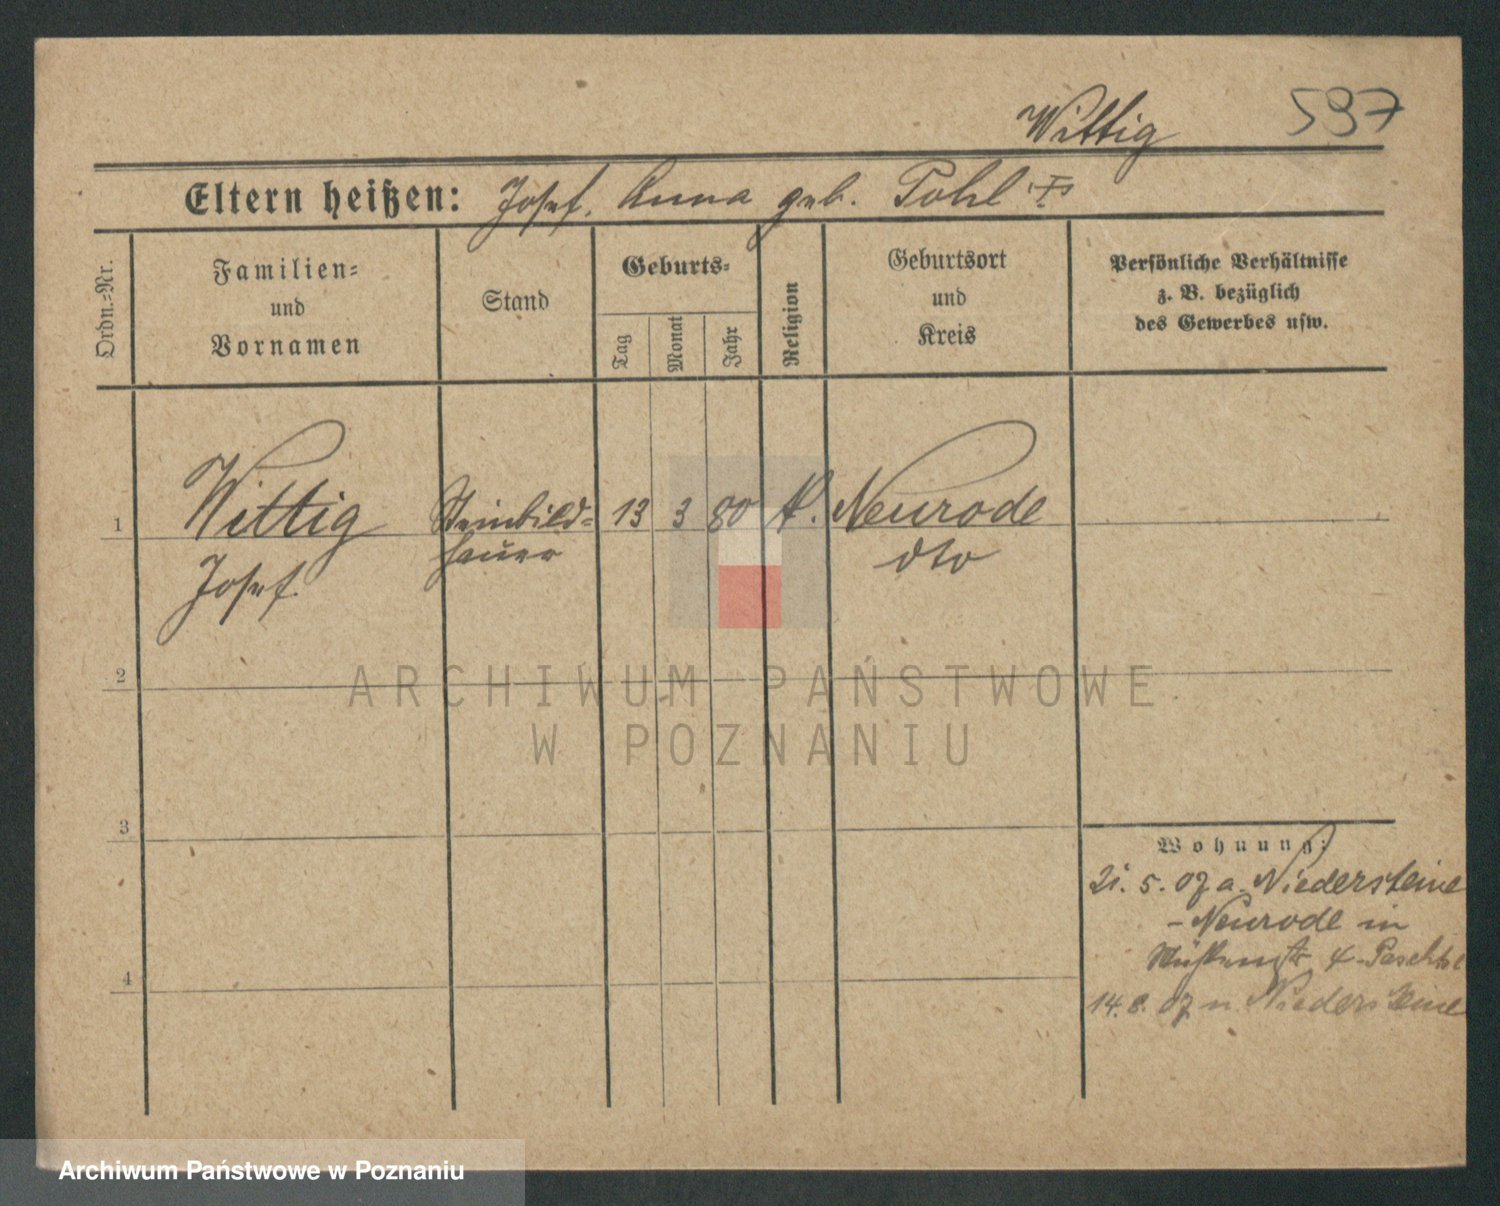 Wittig 597
Eltern heißen: Josef, Anna geb. Pohl
Ordn.-Nr.
Familien-
und
Vornamen
Stand
Geburts-
Tag
Monat
Jahr
Religion
Geburtsort
und
Kreis
Persönliche Verhältnisse
z. B. bezüglich
des Gewerbes usw.
1 Wittig Steinbild= 13 3 80 K. Neurode
Josef hauer dto
2
ARCHIWUM PAŃSTWOWE
W POZNANIU
3
Wohnung:
21. 5. 07 a. Niedersteine
- Neurode in
4
14. 8. 07 n. Niedersteine
Archiwum Państwowe w Poznaniu